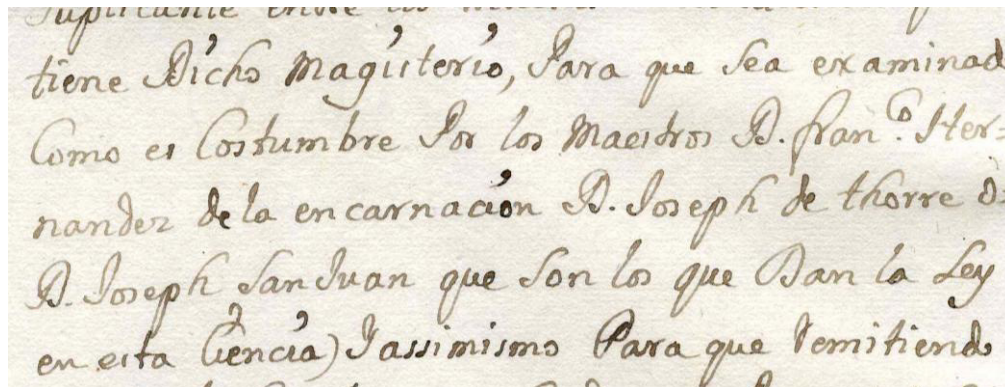 suplicante entre los
tiene Dicho Magisterio, Para que sea examinad
Como es Costumbre Por los Maestros D. fran.co Her-
nandez de la encarnación D. Joseph de thorre d
D. Joseph SanJuan que son los que Dan la Ley
en esta Ciencia) Jassimismo Para que Remitiendo